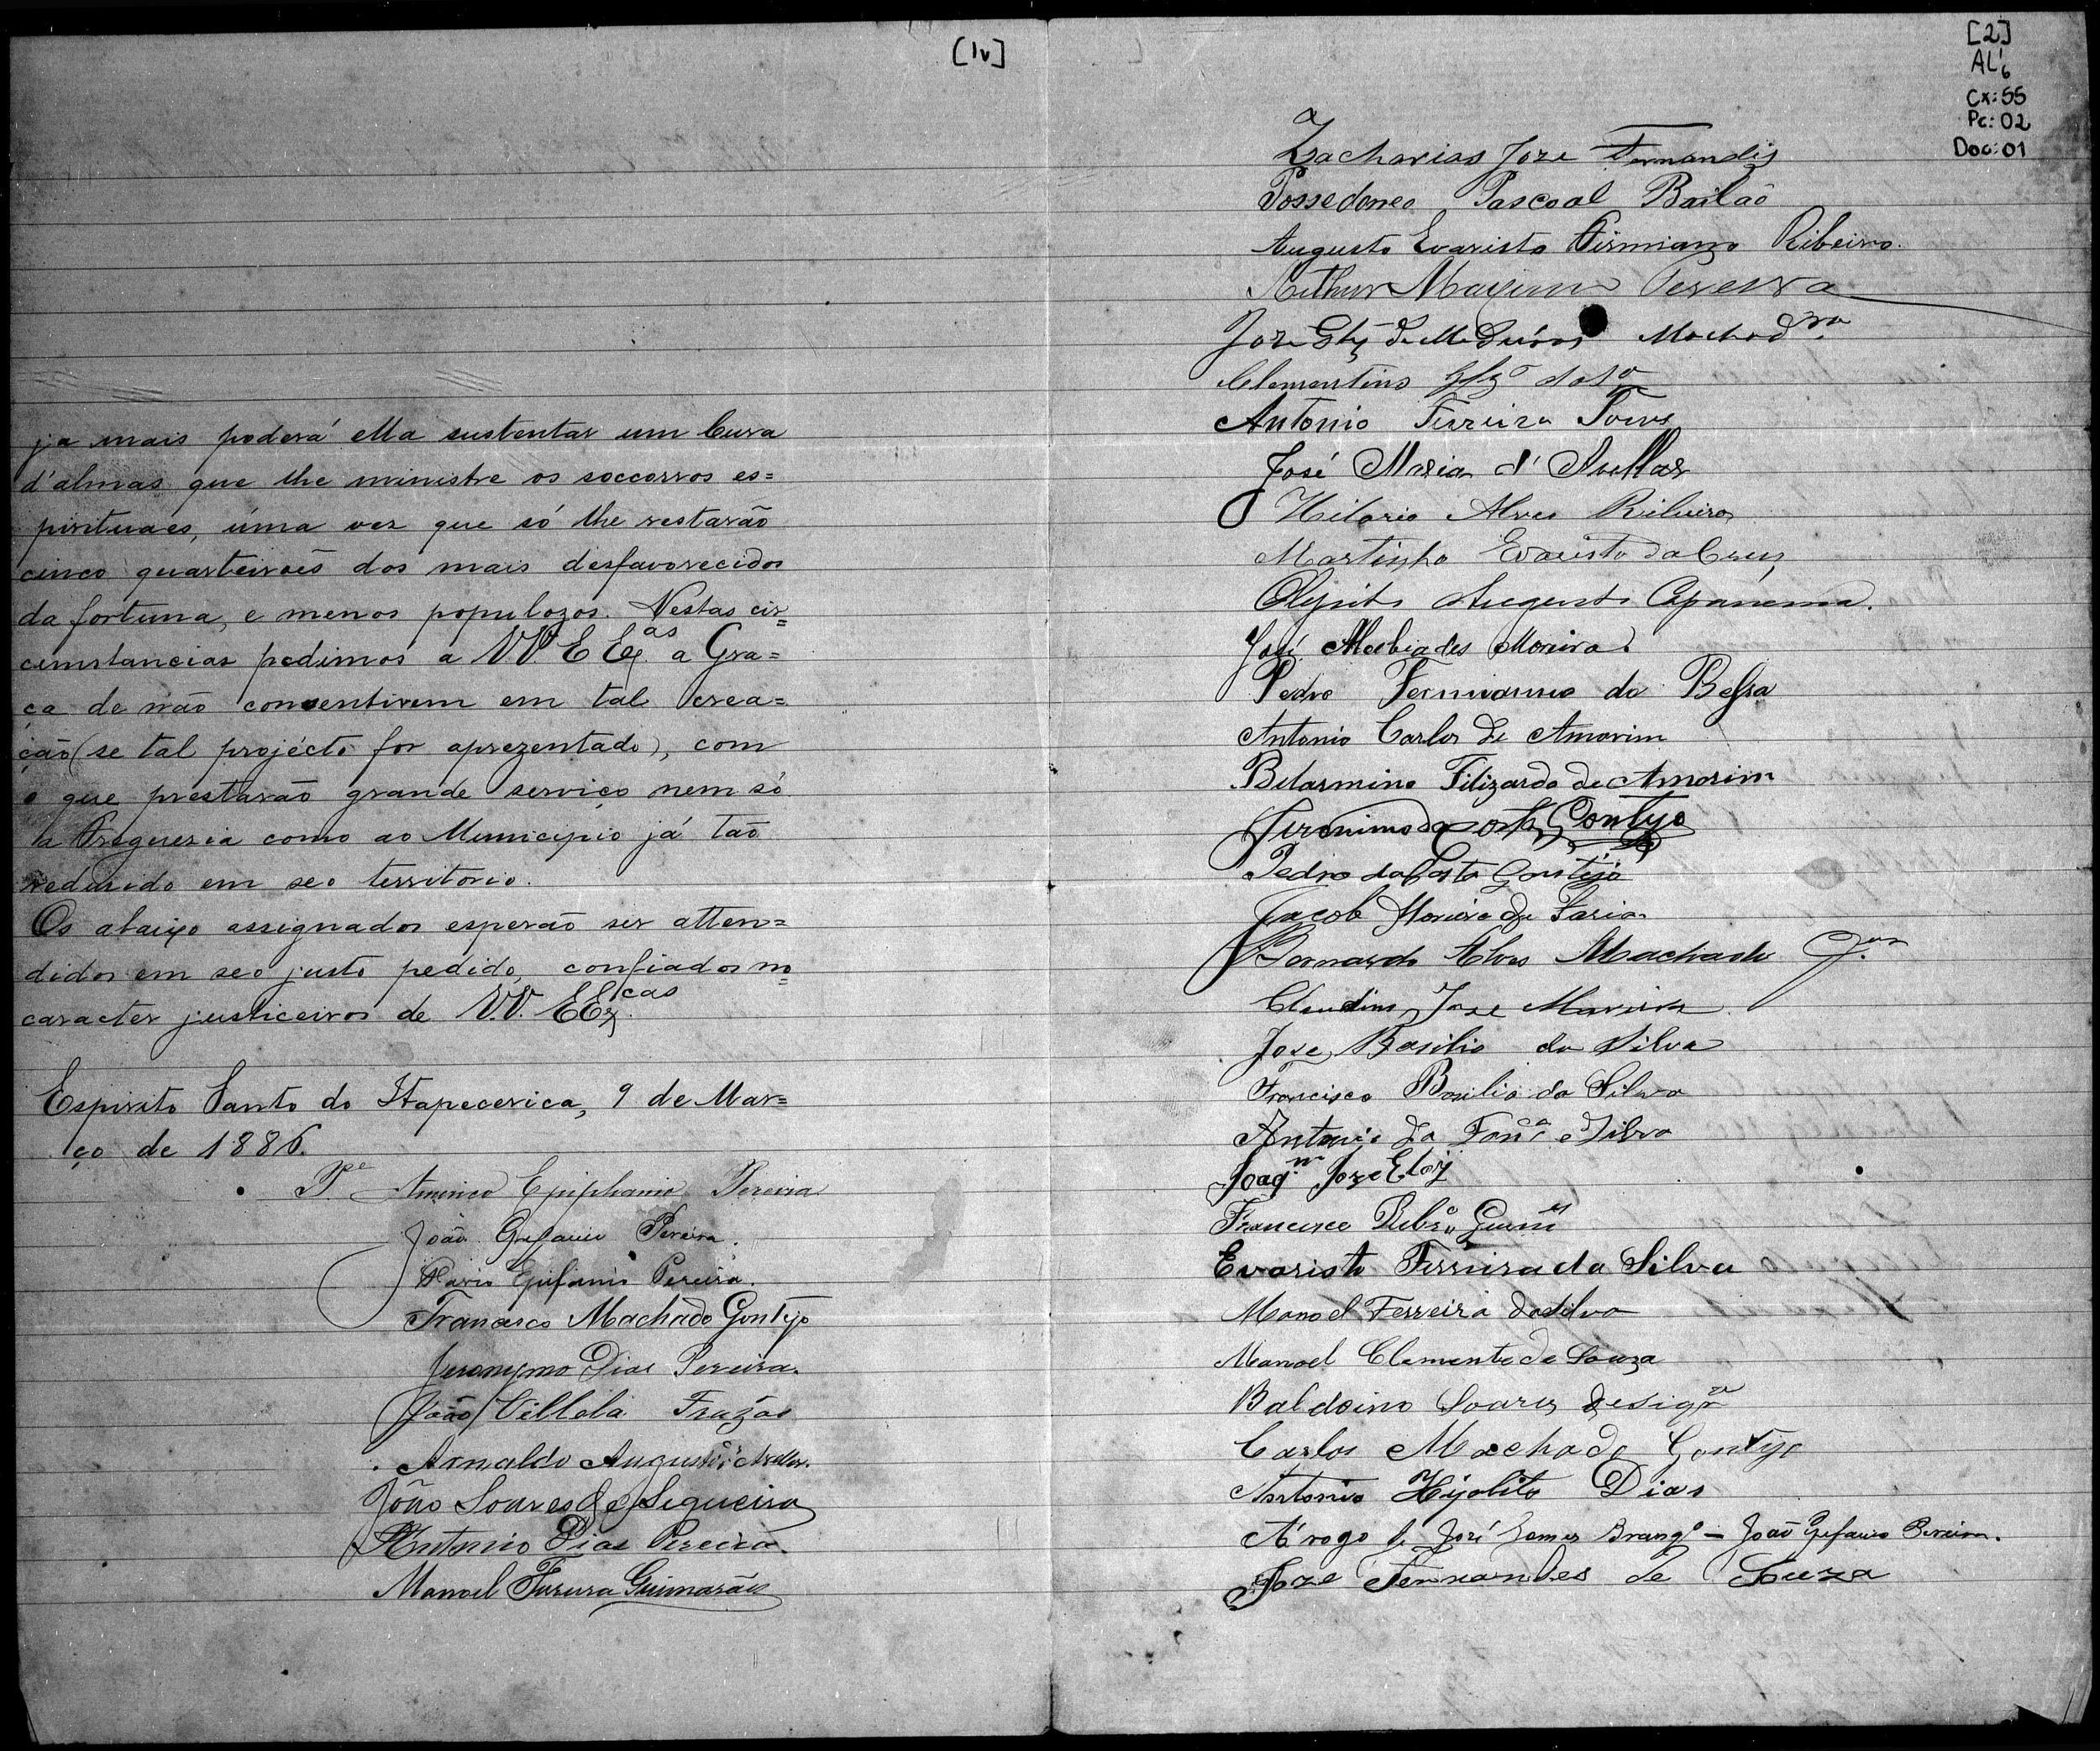 [1v]
ja mais poderá ella sustentar um Cura
d'almas que lhe ministre os soccorros es=
pirituaes, uma vez que só lhe restarão
cinco quarteirões dos mais desfavorecidos
da fortuna, e menos populozos. Nestas cir=
cumstancias pedimos a VV. E Ex.as a Gra=
ça de não consentirem em tal crea=
ção (se tal projécto for aprezentado), com
o que prestarão grande serviço nem só
a Freguezia como ao Municipio já tão
redusido em seo territorio.
Os abaixo assignados esperão ser atten=
didos em seo justo pedido, confiados no=
caracter justiceiros de V.V. EEx.cas
Espirito Santo do Itapecerica, 9 de Mar=
ço de 1886.
Pe Americo Epiphanio Pereira
João Epifanio Pereira.
Epifanio Pereira.
Francisco Machado Gontijo
Jeronymo Dias Pereira.
João Villela Frazão
Arnaldo Augusto
João Soares de Siqueira
Antonio Dias Pereira
Manoel Guimarães
[2]
AL6
Cx: 55
Pc: 02
Doc: 01
Zacharias Joze Fernandis
Possedoneo Pascoal Bailão
Augusto Evaristo Firmiano Ribeiro.
Arthur Maximo Pereira
Joze de Machado
Clementino
Antonio Ferreira
José Maria d'Avellar
Hilario Alves Ribeiro
Martinho Evaristo da Cruz
Augusto Capanema.
José Alcebiades Moreira.
Pedro do Bessa
Antonio Carlos de Amorim
Belarmino Filizardo de Amorim
Jeronimo da Costa Gontijo
Pedro da Costa Gontijo
Jacob de Faria
Bernardo Alves Machado Jor
Claudino Jose
Jose Basilio da Silva
Francisco Basilio da Silva
Antonio da Fonca e Silva
Joaqm Joze Eloy
Francisco Ribro Guimes
Evaristo Ferreira da Silva
Manoel Ferreira da Silva
Manoel Clemente de Souza
Baldoino Soares de
Carlos Machado Gontijo
Antonio Hipolito Dias
A rogo de José Gomes - João Epifanio Pereira.
Joze Fernandes de Souza